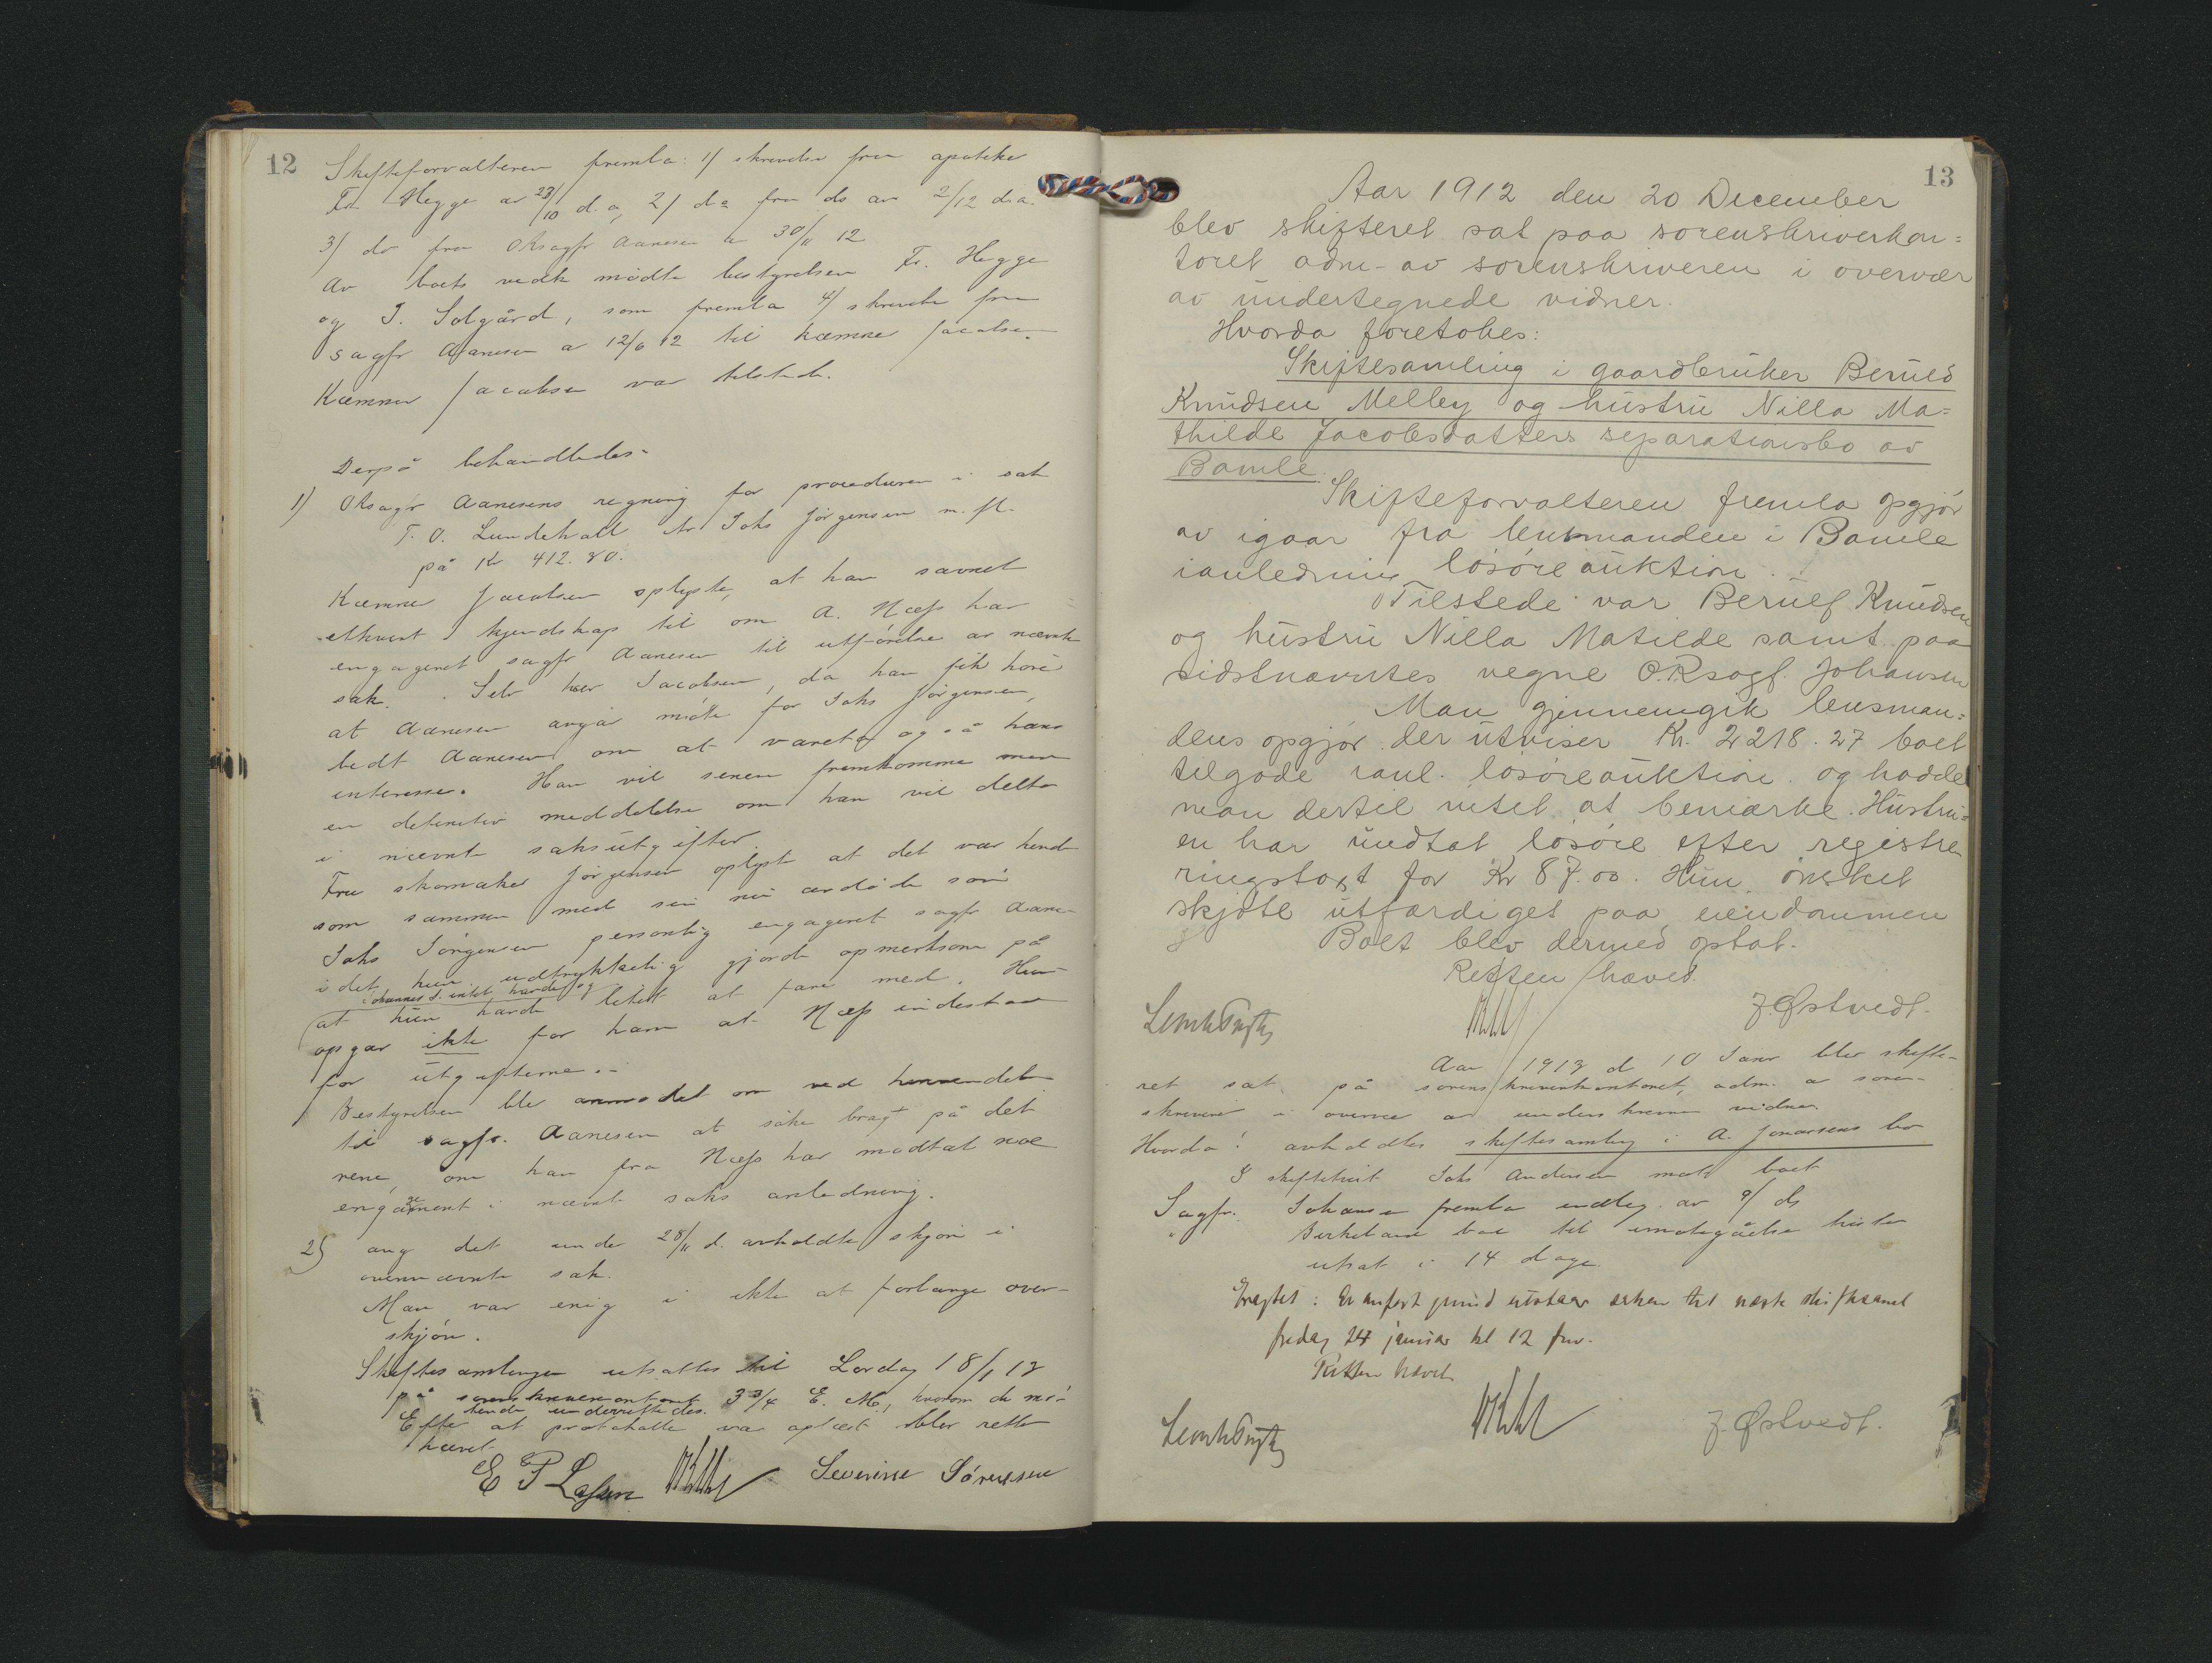 12
Skifteforvalteren fremla: 1/ skrivelse fra apoteker
Fr. Hegge av 23/10 d.a, 2/ do fra ds av 2/12 d.a.
3/ do fra ORsagfr Aanesen av 30/11 12
Av boets vedk mødte bestyrelsen Fr. Hegge
og J. Solgård, som fremla 4/ skrivelse fra
sagfr Aanesen av 12/6 12 til kæmner Jacobsen.
Kæmner Jacobsen var tilstede.
Derpå behandledes:
1) ORsagfr Aanesens regning for proceduren i sak
T. O. Lundehall ktr Johs Jørgensen m. fl.
på Kr 412.80.
Kæmner Jacobsen oplyste, at han savnet
ethvert kjendskap til om A. Næss har
engageret sagfr Aanesen til utførelse av nævnte
sak. Selv har Jacobsen, da han fik høre
at Aanesen møtte for Johs Jørgensen,
bedt Aanesen om at vareta også hans
interesse. Han vil senere fremkomme med
en definitiv meddelelse om han vil delta
i nævnte saksutgifter.
Fru skomaker Jørgensen oplyste at det var hende
som sammen med sin nu avdøde søn
Johs Jørgensen personlig engageret sagfr Aane-
idet hun udtrykkelig gjorde opmerksom på
Johannes J. intet havde og
at hun havde litet at fare med. Hun
opgav ikke for ham at Næss indestaar
for utgifterne.-
Bestyrelsen ble anmodet om ved henvendelse
til sagfr. Aanesen at søke bragt på det
rene, om han fra Næss har modtat noe
engagement i nævnte saks anledning.
2) ang det under 28/11 d. avholdte skjøn i
ovennævnte sak.
Man var enig i ikke at forlange over-
skjøn.
Skiftesamlingen utsattes til Lørdag 18/1 13
på sorenskriverkontoret 3 3/4 E. M., hvorom de mø-
tende underrettedes.
Efter at protokollen var oplæst blev retten
hævet.
E P Lassen Severine Sørensen
13
Aar 1912 den 20 December
blev skifteret sat paa sorenskriverkon=
toret adm- av sorenskriveren i overvær
av undertegnede vidner.
Hvorda foretokes:
Skiftesamling i gaardbruker Beruld
Knudsen Melleby og hustru Nilla Ma=
thilde Jacobsdatters separationsbo av
Bamle.
Skifteforvalteren fremla opgjør
av igaar fra lensmanden i Bamle
ianledning løsøreauktion.
Tilstede var Berulf Knudsen
og hustru Nilla Matilde samt paa
sidstnævntes vegne O.Rsagf. Johansen
Man gjennemgik lensman=
dens opgjør der utviser Kr. 2218.27 boet
tilgode ianl. løsøreauktion og hadde
man dertil intet at bemærke. Hustru=
en har undtat løsøre efter registre
ringstaxt for Kr 87.00. Hun ønsket
skjøte utfærdiget paa eiendommen
Boet blev dermed optat.
Retten hævet.
J. Østvedt.
Aar 1913 d 10 Janr blev skifte-
ret sat på sorenskriverkontoret, adm. av soren-
skriveren i overvær av underskrevne vidner.
Hvorda: avholdtes skiftesamling i A. Jonassens bo
I skiftetvist Johs Andersen mot boet
Sagfr. Johansen fremla indlæg av 9/ ds
" Birkeland bad til imøtegåelse herav
utsat i 14 dage
Eragtet: Er anført grund utstaar saken til næste skiftesaml
fredag 24 januar kl 12 fm.
Retten hævet
J. Østvedt.